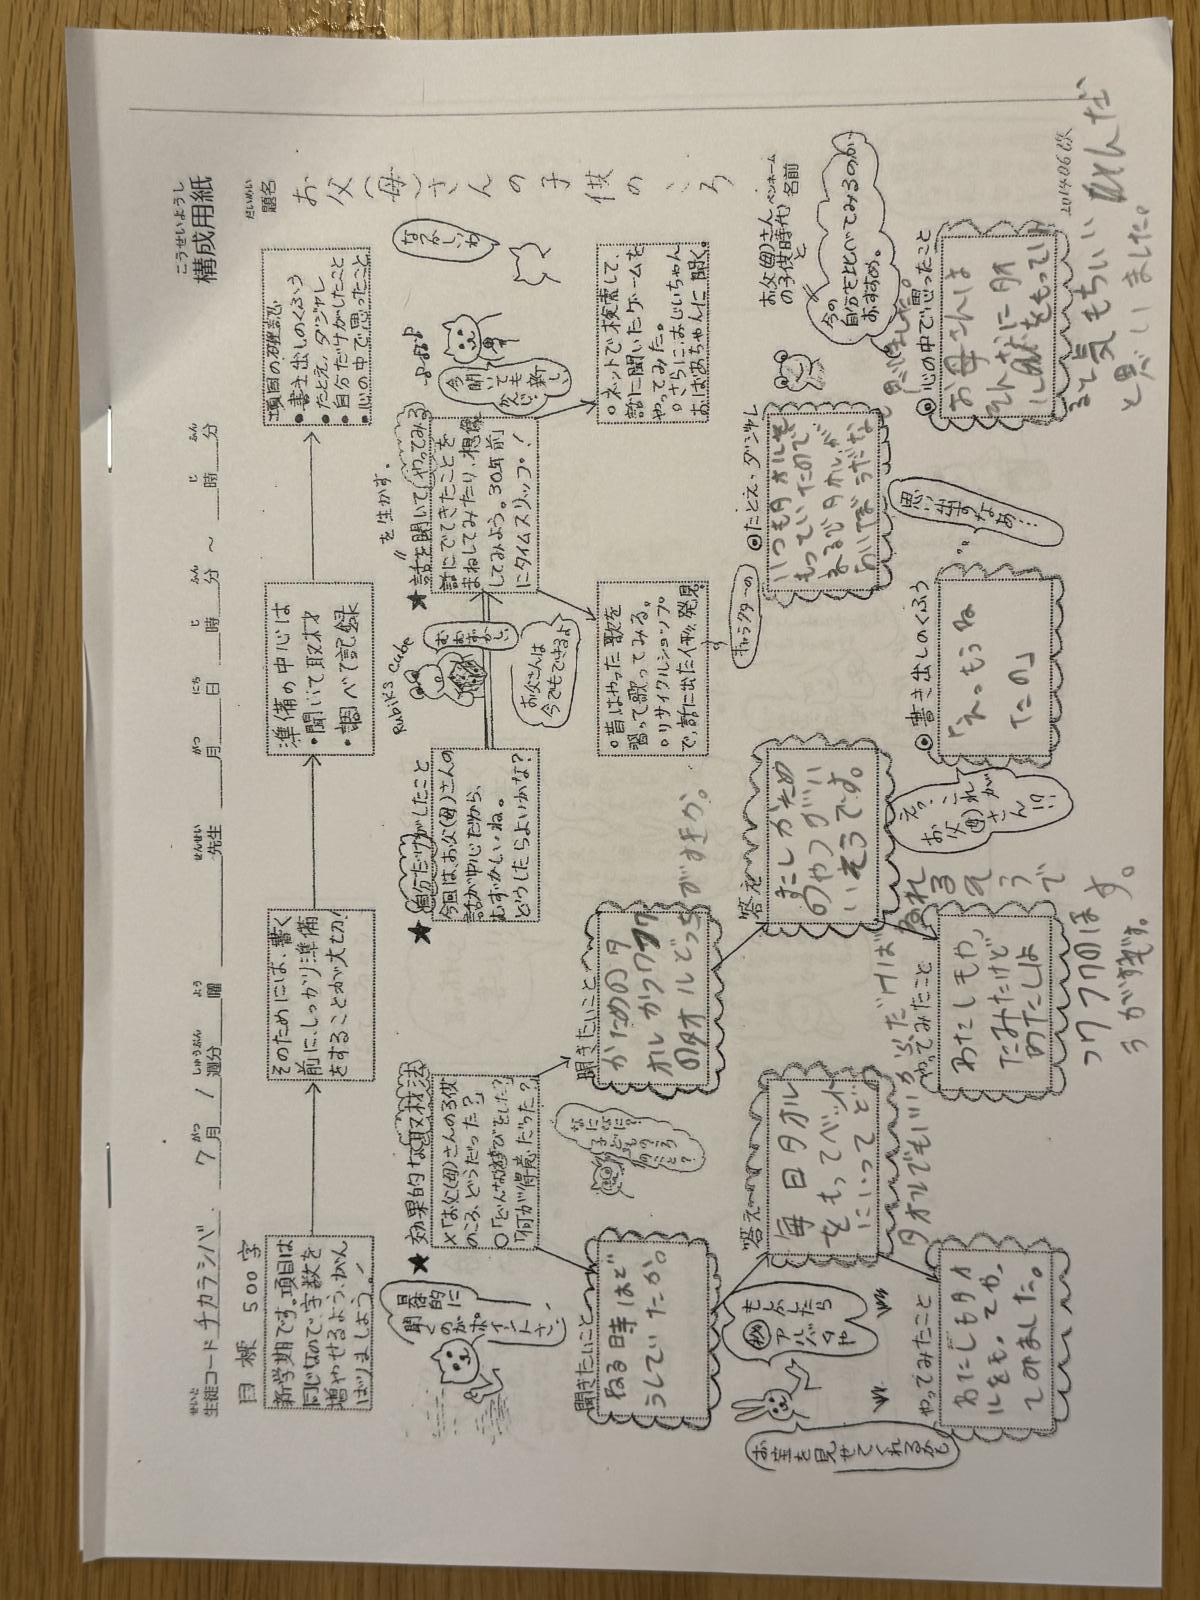 こうせいようし
構成用紙
せいと
生徒コード チカラシバ 7月 1週分 曜 先生 月 日 時 分 ～ 時 分
がつ しゅうぶん よう せんせい がつ にち じ ふん じ ふん
だいめい
題名
お父(母)さんの子供のころ
お父(母)さん
の子供時代と
ペンネーム
名前
目標 500字
新学期です。項目は
同じなので字数を
増やせるよう、がん
ばりましょう。
そのためには、書く
前に、しっかり準備
をすることが大切!
準備の中心は
・聞いて取材
・調べて記録
項目の確認
・書き出しのくふう
・たとえ、ダジャレ
・自分だけがしたこと
・心の中で思ったこと
★効果的な取材法
×「お父(母)さんの子供
のころ、どうだった?」
○「どんな遊びをした?」
「何が得意だった?」
具体的に
聞く
のがポ
イントさ。
★自分だけがしたこと
今回は、お父(母)さんの
話が中心だから、
むずかしいね。
どうしたらよいかな?
Rubik's Cube
むずかしい
お父さんは
今でもできるよ
★"話を聞いてやってみる"
を生かす。
話にでてきたことを
まねしてみたり、想像
してみよう。30年前
にタイムスリップ!
今聞い
ても
かんじ
新しい
なつかしいね
○昔はやった歌を
習って歌ってみる。
○リサイクルショップ
で、話に出た人形発見。
キャラクターの
○ネットで検索して、
話に聞いたゲームを
やってみた。
○さらに、おじいちゃん
おばあちゃんに聞く。
聞きたいこと
ねる時はど
うしていたか。
なになに?
子どもの
ころの
こと?
聞きたいこと
かためのタ
オルかフワフワ
のタオルどっち
がすきか。
もしか
したら
アルバムや
お宝を見せてくれるかも
答え
毎日タオル
をもってベット
にいってど
タオルでもいい
答え
すこしかため
のやつがいい
そうです。
やってみたこと
わたしもタオ
ルをもってや
てみました。
やってみたこと
わたしもや、
てみたけど
わたしは
フワフワのほ
うがすきです。
◎書き出しのくふう
「えっもうね
たの」
えっ、これが
お父(母)さん
!?
◎たとえ、ダジャレ
いつもタオルを
もっていたので
まるでタオルが
思い出だなあ…
今の
自分と比べてみるのが
おすすめ。
◎心の中で思ったこと
お母さんは
そんなにタオ
ルをもってい
ると気もちいいんだ
と思いました。
2014.06改